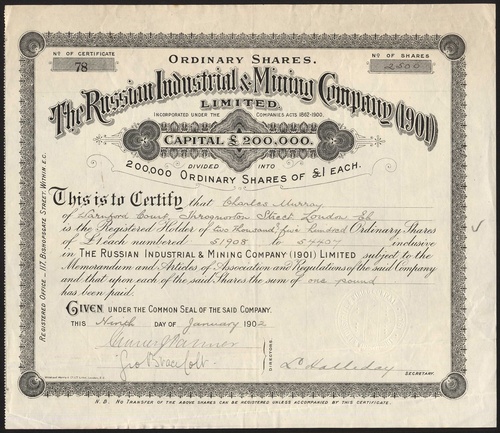 ORDINARY SHARES.
No OF CERTIFICATE
78
No OF SHARES
2500
The Russian Industrial & Mining Company (1901)
LIMITED.
INCORPORATED UNDER THE COMPANIES ACTS 1862-1900.
CAPITAL £200,000.
DIVIDED INTO
200,000 ORDINARY SHARES OF £1 EACH.
This is to Certify that Charles Murray
of Warnford Court, Throgmorton Street, London EC
is the Registered Holder of two thousand five hundred Ordinary Shares
of £1 each numbered 51908 to 54407 inclusive
in THE RUSSIAN INDUSTRIAL & MINING COMPANY (1901) LIMITED subject to the
Memorandum and Articles of Association and Regulations of the said Company
and that upon each of the said Shares the sum of one pound
has been paid.
GIVEN UNDER THE COMMON SEAL OF THE SAID COMPANY.
THIS Ninth DAY OF January 1902
DIRECTORS.
L Halleday
SECRETARY.
N.B. No TRANSFER OF THE ABOVE SHARES CAN BE REGISTERED UNLESS ACCOMPANIED BY THIS CERTIFICATE.
REGISTERED OFFICE - 117, BISHOPSGATE STREET, WITHIN E.C.